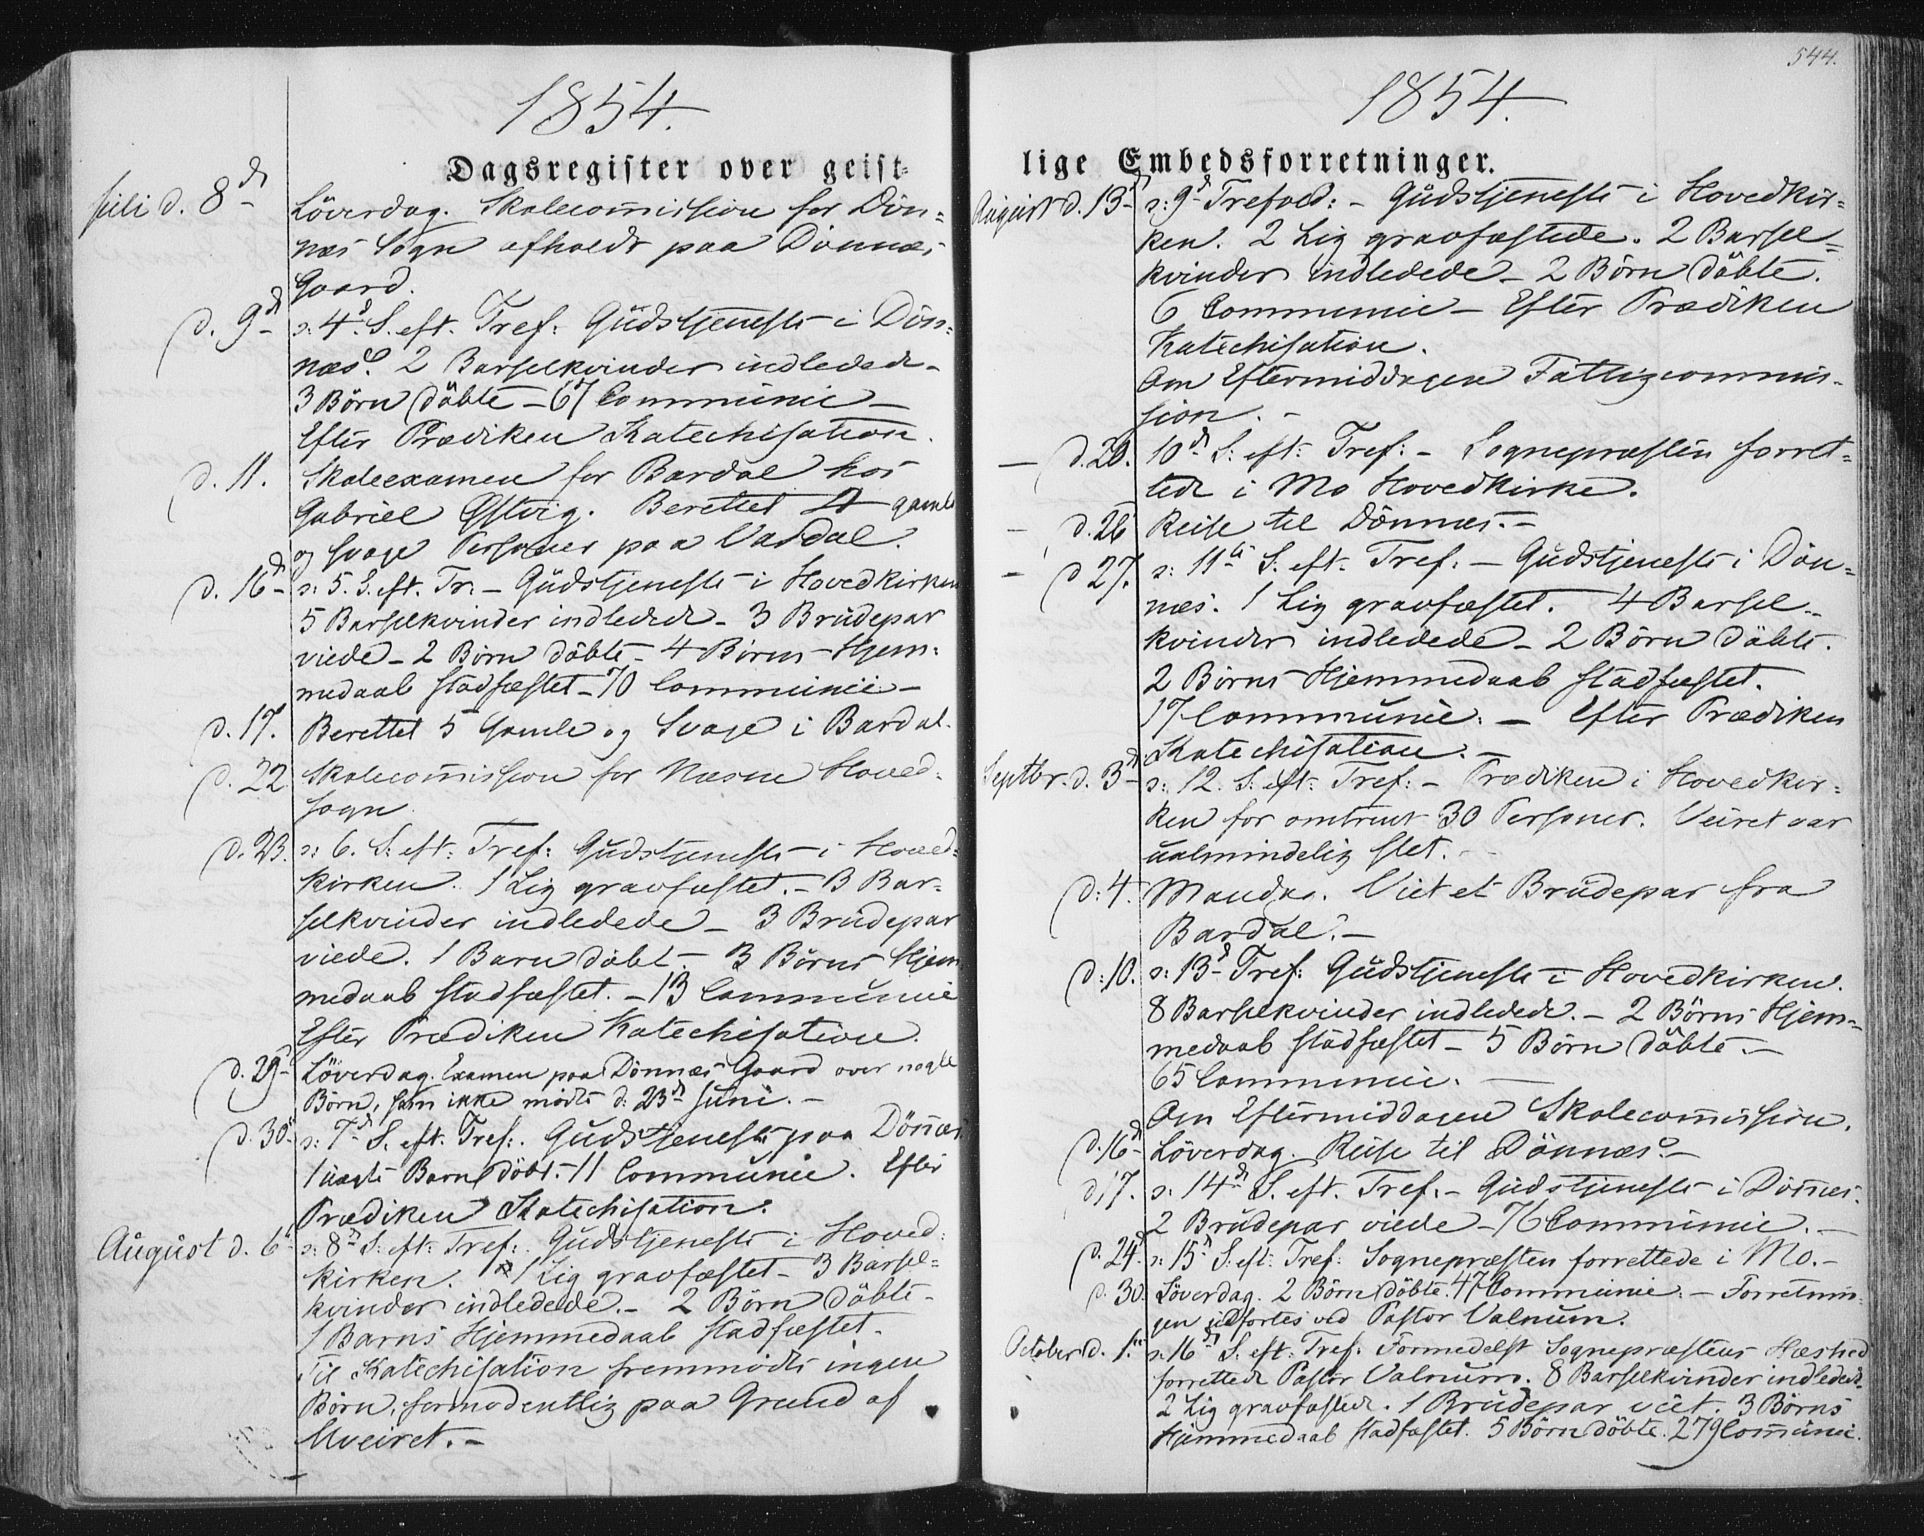 1854.
Dagsregister over geist-
Juli d. 8de
Löverdag. Skolecom̅ission for Dön-
næs Sogn afholdt paa Dönnæs
Gaard.
d. 9de
s: 4de S. eft. Tref: Gudstjeneste i Dön-
næs. 2 Barselkvinder indledede -
3 Börn döbte - 67 Communic -
Efter Prædiken Katechisation.
d. 11.
Skoleexamen for Bardal hos
Gabriel Østvig. Berettet 4 gamle
og svage Personer paa Vardal.
d. 16de
s: 5. S. eft. Tr: - Gudstjeneste i Hovedkirken
5 Barselkvinder indledede - 3 Brudepar
viede - 2 Börn döbte - 4 Börns Hjem-
medaab stadfæstet - 70 Communic -
d. 17.
Berettet 5 Gamle og Svage i Bardal.
d. 22
Skolecom̅ission for Næsne Hoved-
sogn.
d. 23.
s: 6. S: eft: Tref: Gudstjeneste i Hoved-
kirken. 1 Lig gravfæstet. - 3 Bar-
selkvinder indledede - 3 Brudepar
viede. 1 Barn döbt - 3 Börns Hjem-
medaab stadfæstet. - 13 Communic
Efter Prædiken Katechisation.
d. 29de
Löverdag. Examen paa Dönnæs Gaard over nogle
Börn, som ikke mödte d: 23de Juni. -
d. 30de
s: 7de S. eft. Tref:. Gudstjeneste paa Dön̅æs
1 uægte Barn döbt. - 11 Communic. Efter
Prædiken Katechisation.
August d. 6te
s: 8de S: eft: Tref:. Gudstjeneste i Hoved-
kirken. 1 Lig gravfæstet - 3 Barsel-
kvinder indledede. - 2 Börn döbte -
1 Barns Hjemmedaab stadfæstet.
Til Katechisation fremmödte ingen
Börn, formodentlig paa Grund af
Uveiret. -
544.
1854.
lige Embedsforretninger.
August d. 13de
s: 9de Trefold: - Gudstjeneste i Hovedkir-
ken. 2 Lig gravfæstede. 2 Barsel-
kvinder indledede - 2 Börn döbte.
6 Communic - Efter Prædiken
Katechisation.
Om Eftermiddagen Fattigcommis-
sion. -
- d. 20.
10de S: eft: Tref: - Sognepræsten forret-
tede i Mo Hovedkirke.
- d. 26
Reise til Dönnæs. -
- d 27.
s: 11te S. eft. Tref: - Gudstjeneste i Dön-
næs. 1 Lig gravfæstet. 4 Barsel-
kvinder indledede - 2 Börn döbte.
2 Börns Hjemmedaab stadfæstet.
17 Communic: - Efter Prædiken
Katechisation. -
Septbr. d. 3de
s: 12. S. eft: Tref: - Prædiken i Hovedkir-
ken for omtrent 30 Personer. Veiret var
ualmindelig slet. -
d: 4.
Mandag. Viet et Brudepar fra
Bardal. -
d: 10.
s: 13de Tref: Gudstjeneste i Hovedkirken.
8 Barselkvinder indledede. - 2 Börns Hjem-
medaab stadfæstet - 5 Börn döbte. -
65 Communic. -
Om Eftermiddagen Skolecom̅ission.
d. 16de
Löverdag. Reise til Dönnæs. -
d 17.
s: 14de S. eft. Tref. - Gudstjeneste i Dön̅æs.
2 Brudepar viede - 76 Communic. -
d. 24de
s: 15de S: eft: Tref: Sognepræsten forrettede i Mo. -
d. 30.
Löverdag. 2 Börn döbte. 47 Communic. - Forretnin-
gen udfortes ved Pastor Valnum.
October d. 1ste
s: 16de S. eft. Tref: Formedelst Sognepræstens Hæshed
forrettede Pastor Valnum. 8 Barselkvinder indledede.
2 Lig gravfæstede. 1 Brudepar viet. 3 Börns
Hjemmedaab stadfæstet. 5 Börn döbte. 279 Com̅unic.